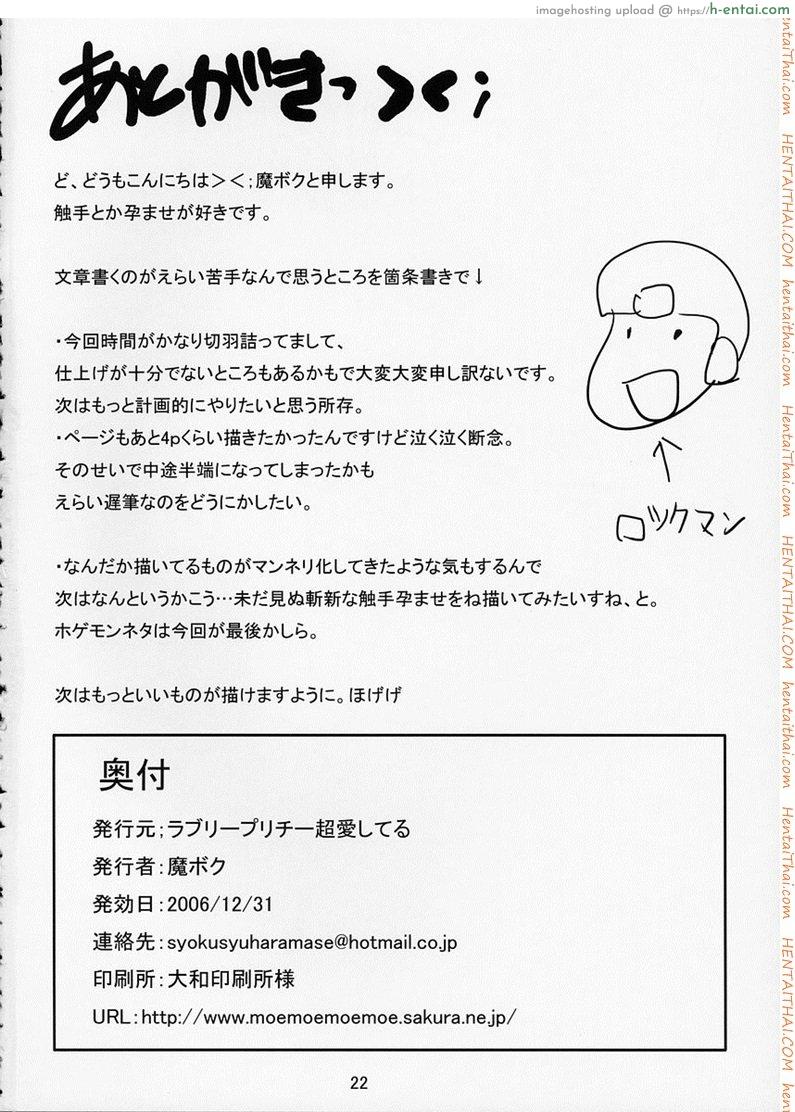 imagehosting upload @ https://h-entai.com
あとがきっ＞＜；
ど、どうもこんにちは＞＜；魔ボクと申します。
触手とか孕ませが好きです。
文章書くのがえらい苦手なんで思うところを箇条書きで↓
・今回時間がかなり切羽詰ってまして、
仕上げが十分でないところもあるかもで大変大変申し訳ないです。
次はもっと計画的にやりたいと思う所存。
・ページもあと4pくらい描きたかったんですけど泣く泣く断念。
そのせいで中途半端になってしまったかも
えらい遅筆なのをどうにかしたい。
ロックマン
・なんだか描いてるものがマンネリ化してきたような気もするんで
次はなんというかこう…未だ見ぬ斬新な触手孕ませをね描いてみたいすね、と。
ホゲモンネタは今回が最後かしら。
次はもっといいものが描けますように。ほげげ
奥付
発行元；ラブリープリチー超愛してる
発行者：魔ボク
発効日：2006/12/31
連絡先：syokusyuharamase@hotmail.co.jp
印刷所：大和印刷所様
URL：http://www.moemoemoemoe.sakura.ne.jp/
22
entaiThai.com HENTAITHAI.COM hentaithai.com HentaiThai.com HENTAITHAI.COM hentaithai.com HentaiThai.com HENTAITHAI.COM